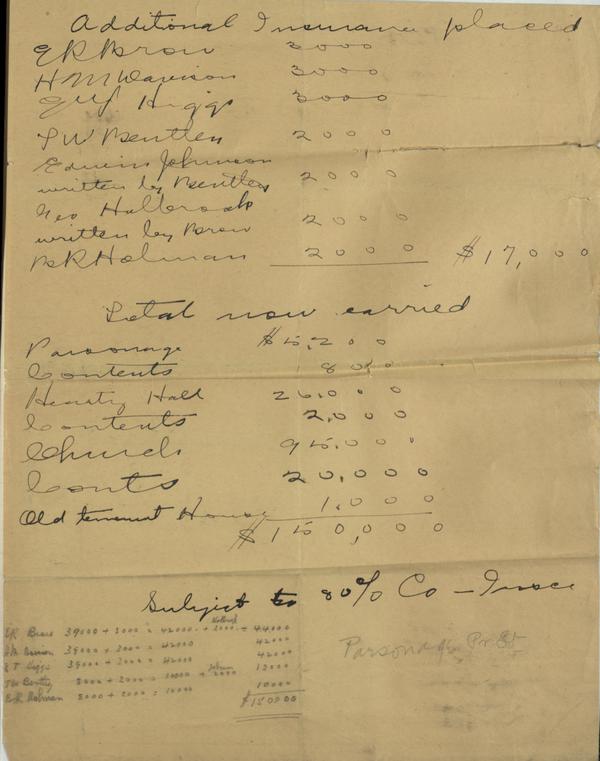 Additional Insurance placed
E R Brow 3000
H M Davison 3000
Higgs 3000
T W Bentley 2000
Edwin Johnson
written by Bentley 2000
Geo Holbrook
written by Brow 2000
B R Holman 2000 $17,000
Total now carried
Parsonage $5,200
Contents 800
Hearty Hall 26,000
Contents 2,000
Church 95,000
Conts 20,000
Old tenement House 1,000
$150,000
Subject to 80% Co-Insce
39000 + 3000 = 42000 + 2000 = 44000
39000 + 3000 = 42000 42000
39000 + 3000 = 42000 42000
8000 + 2000 = 10000 + 2000 12000
8000 + 2000 = 10000 10000
$150000
Parsonage